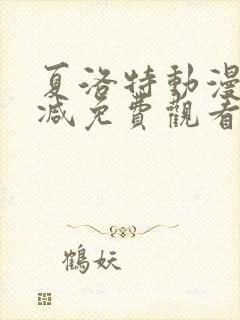 夏洛特動漫
減免費觀看
鶴妖